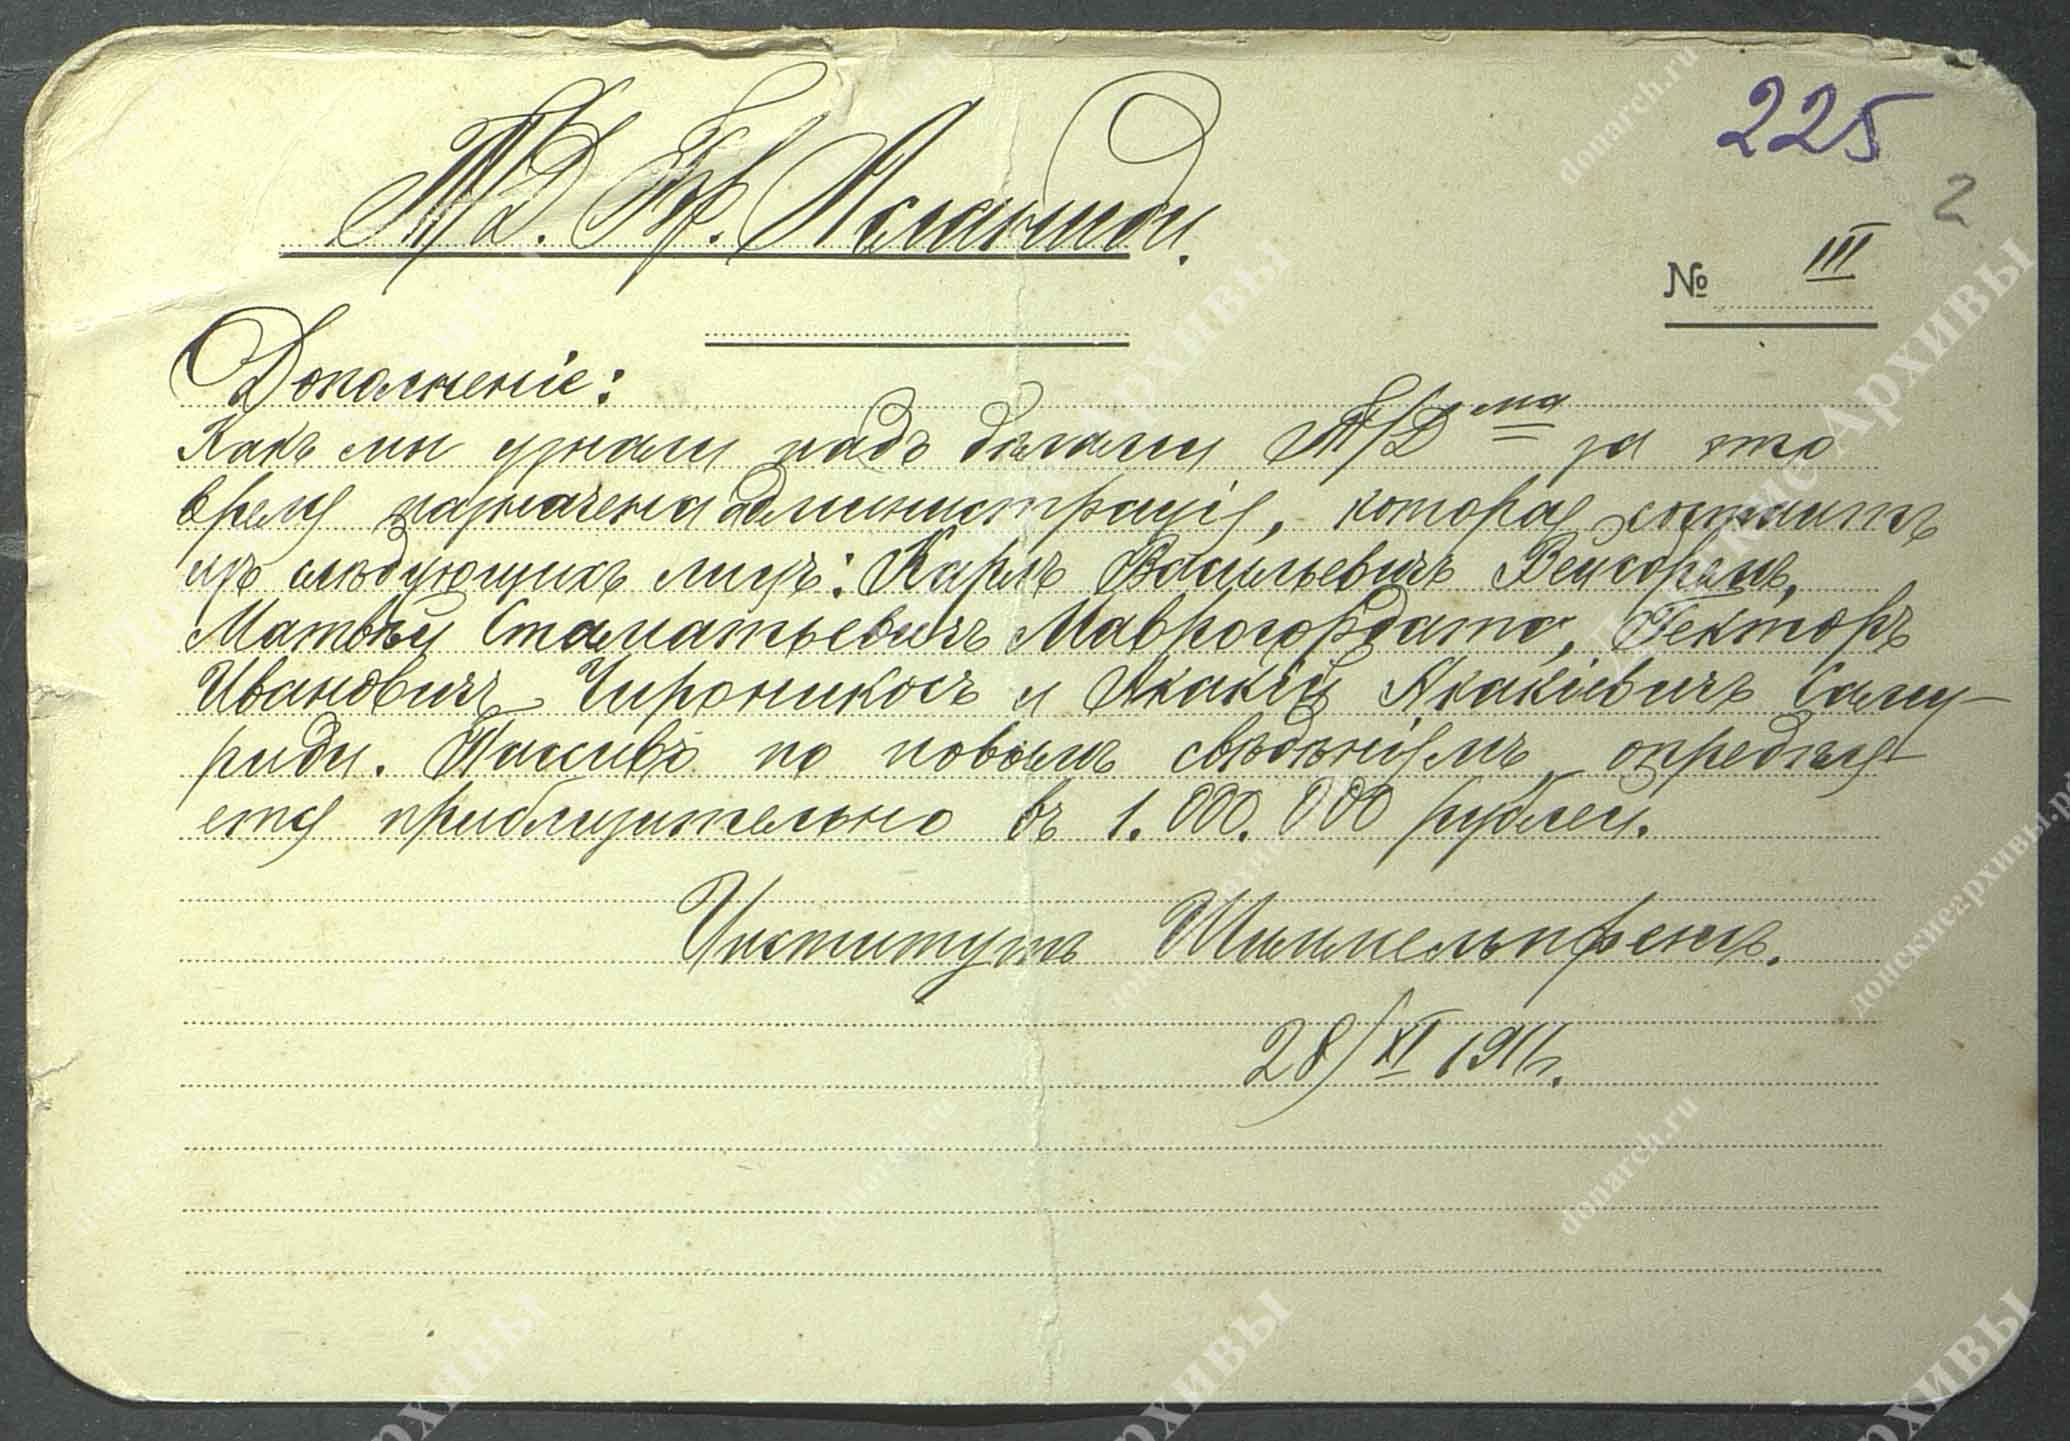 225
2
Т/Д. Бр. Асланиди.
№ III
Дополненіе:
Какъ мы узнали надъ дѣлами Т/Д ма за это
время назначена администрація, которая состоитъ
изъ слѣдующихъ лицъ: Карлъ Васильевичъ
Матвѣй Стаматьевичъ Маврогордато, Гекторъ
Ивановичъ Чирониксъ и Акакій Акакіевичъ Сами-
риди. Пассивъ по новымъ свѣдѣніямъ опредѣля-
ется приблизительно въ 1.000.000 рублей.
Институтъ Шиммельпфенгъ.
28/XI 1911г.